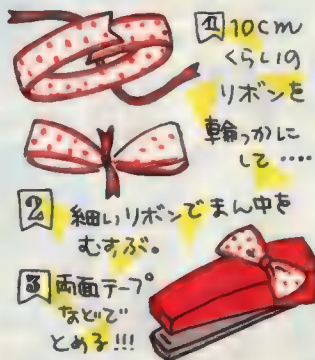 1 10cm
くらいの
リボンを
輪っかに
して……
2 細いリボンでまん中を
むすぶ。
3 両面テープ
などで
とめる!!!